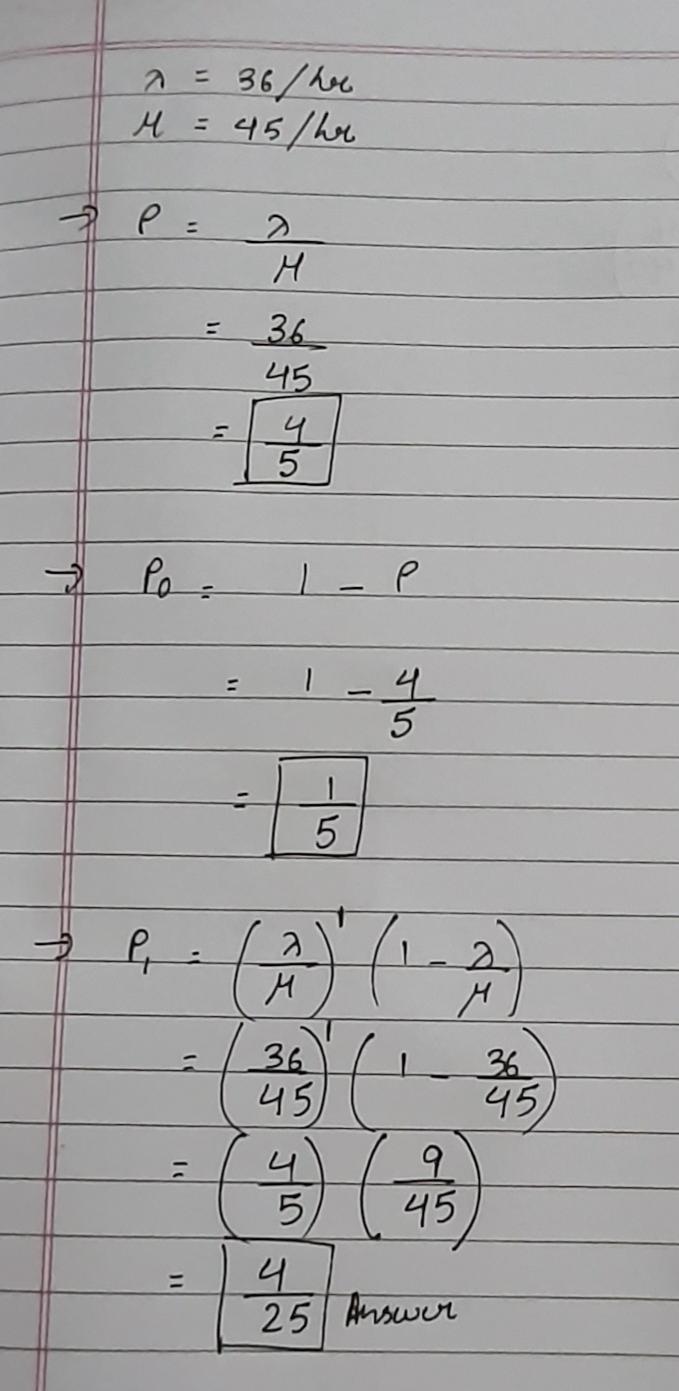 λ = 36/hr
μ = 45/hr
→ ρ = λ/μ
= 36/45
= 4/5
→ P₀ = 1 - ρ
= 1 - 4/5
= 1/5
→ P₁ = (λ/μ)¹ (1 - λ/μ)
= (36/45)¹ (1 - 36/45)
= (4/5) (9/45)
= 4/25 Answer